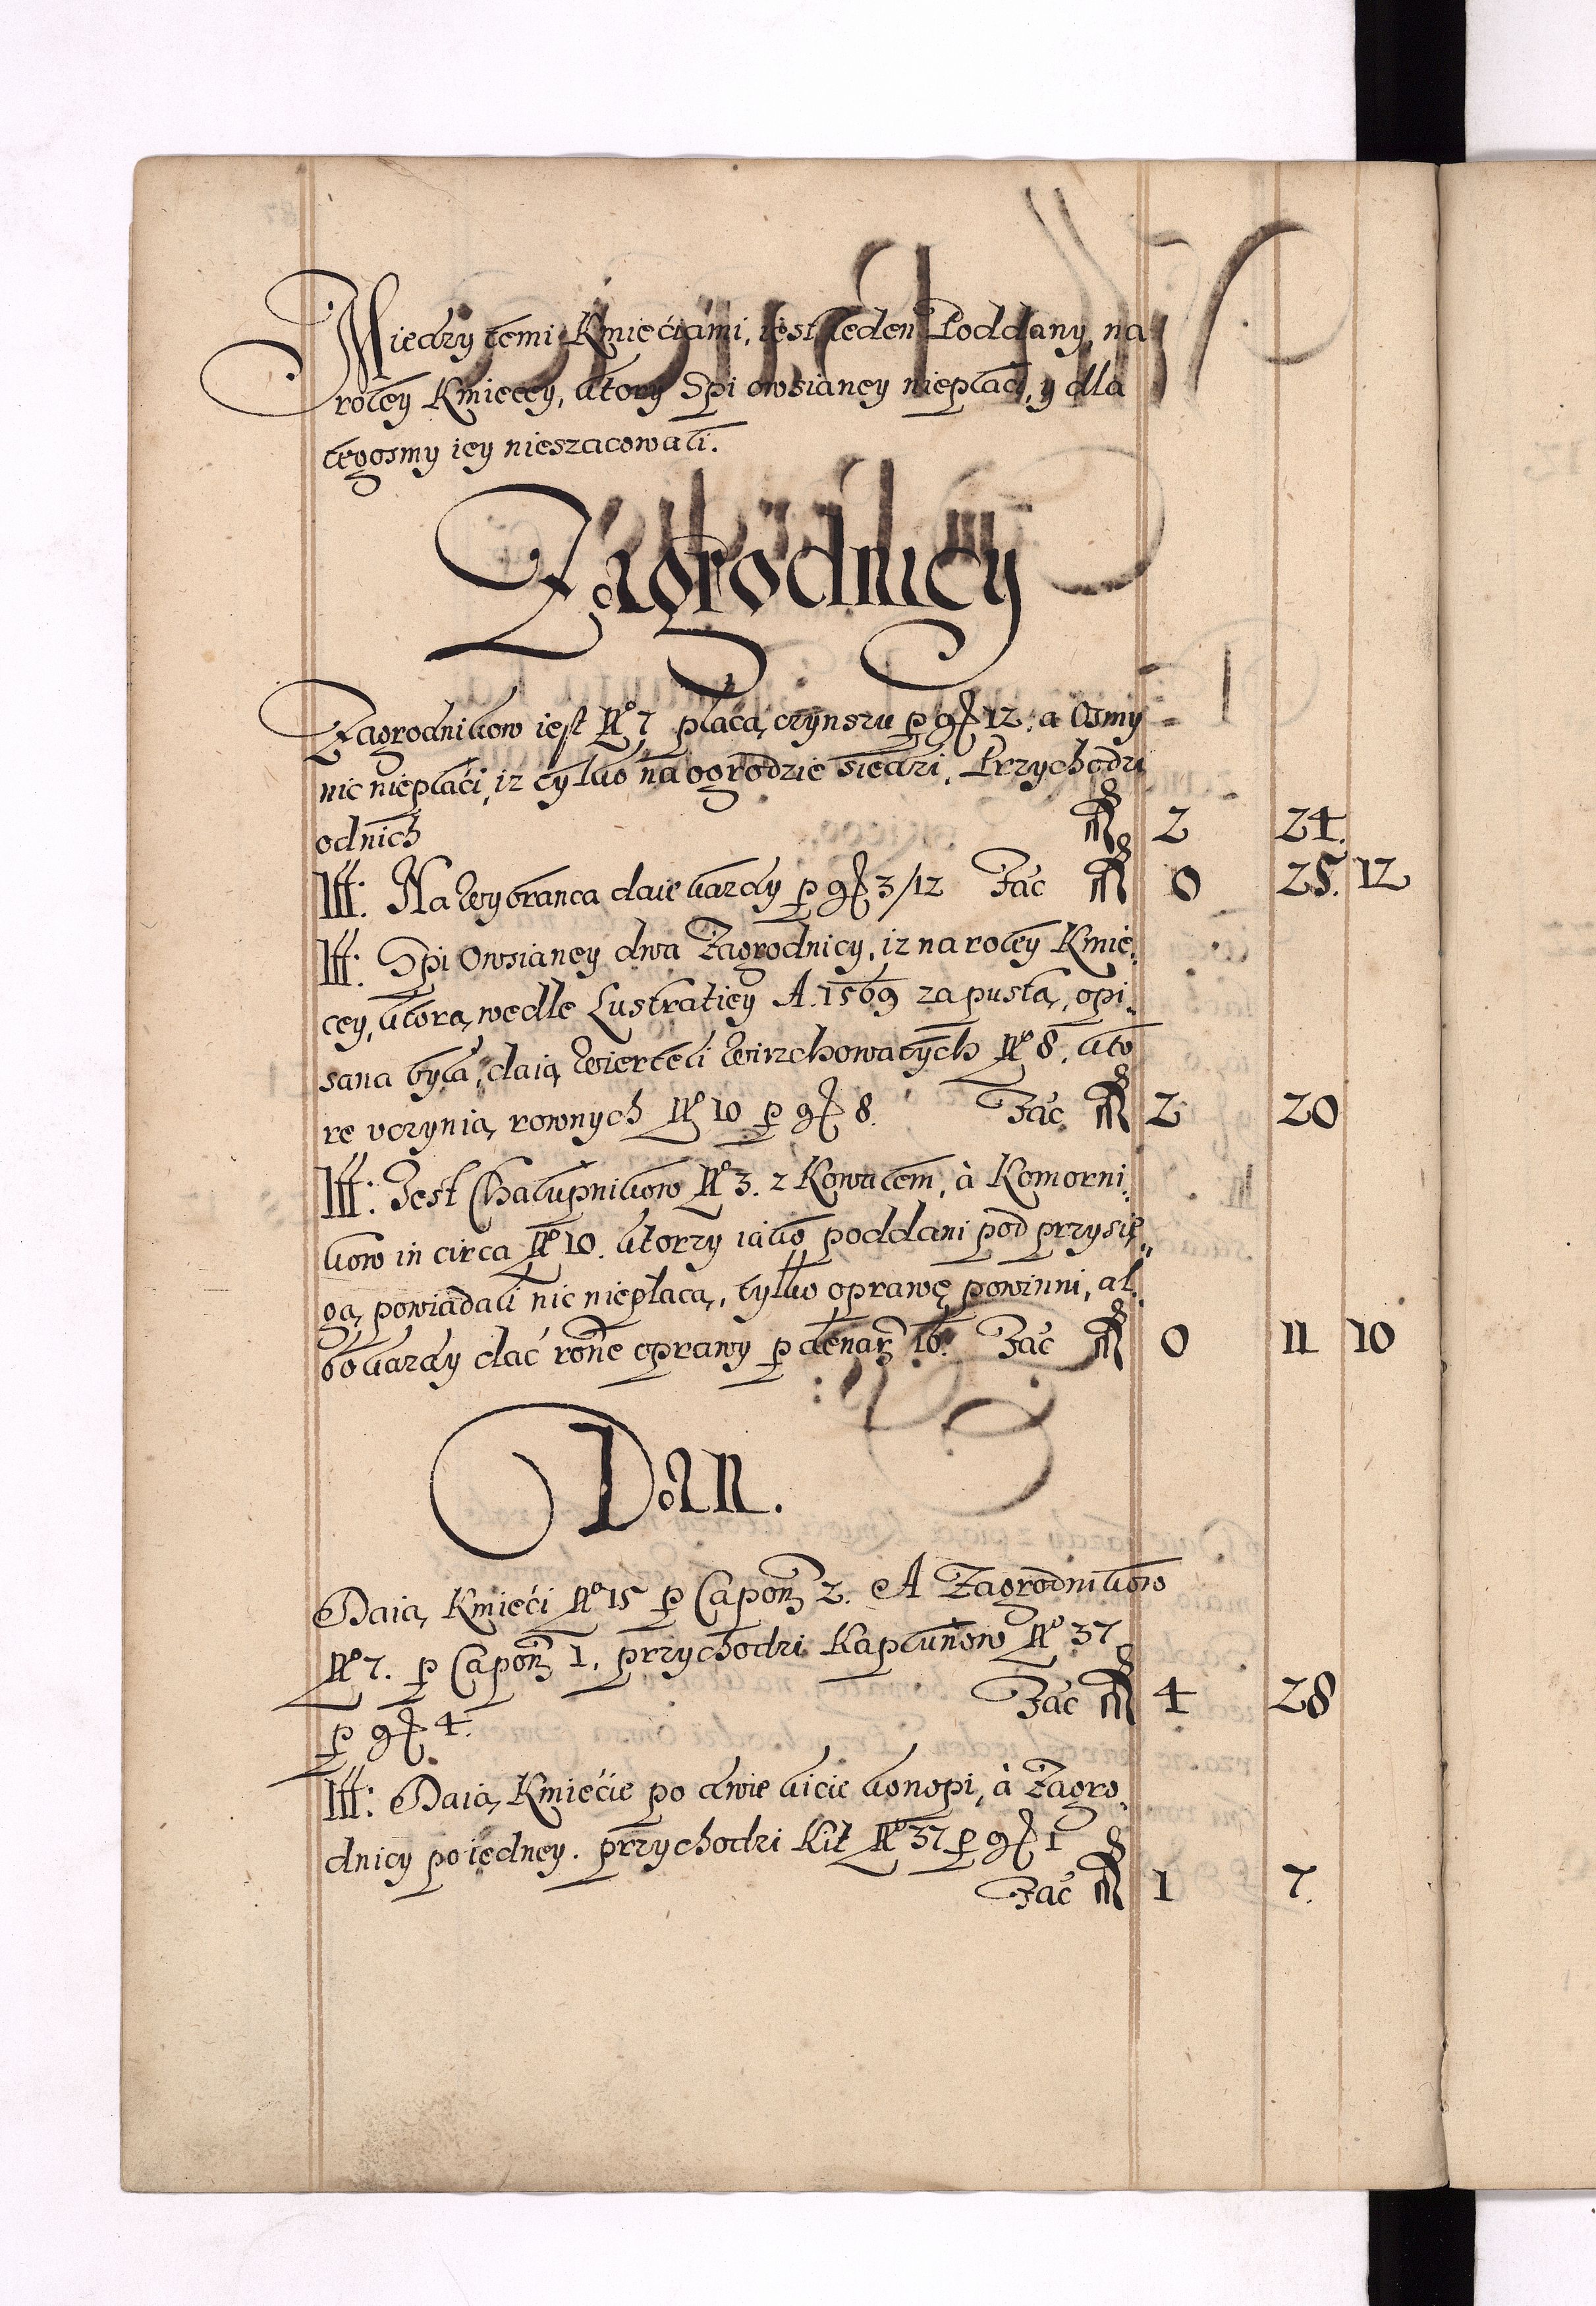 Miedzy temi Kmieciami, iest ieden Poddany, na
roley Kmiecey, ktory Spi owsianey nieplaci, y dla
tegosmy iey nieszacowali.
Zagrodnicy
Zagrodnikow iest No 7 płacą czynszu p gr 12. a Osmy
nic niepłaci, iz tylko na ogrodzie siedzi, Przychodzi
odnich fl 2 24.
Itt: Na Wybranca daie kazdy p gr 3/12 Zác fl 0 25. 12
Itt: Spi Owsianey dwa Zagrodnicy, iz na roley Kmie,
cey, ktora wedle Lustratiey A. 1569 za pustą, opi,
sana była, daią Wierteli Wirzchowatych No 8. kto
re uczynią rownych No 10 p gr 8. Zác fl 2 20
Itt: Jest Chałupnikow No 3. z Kowalem, à Komorni,
kow in circa No 10. ktorzy iako poddani pod przysię,,
gą powiadali nic niepłacą, tylko oprawę powinni, al,
bo kazdy dać rone oprawy p denar 16. Zác fl 0 11 10
Dan.
Daią Kmieći No 15 p Capon 2. A Zagrodnikow
No 7. p Capon 1, przychodzi Kapłunow No 37
p gr 4. Zác fl 4 28
Itt: Daią Kmiećie po dwie kicie konopi, à Zagro,
dnicy po iedney. przychodzi Kit No 37 p gr 1
Zác fl 1 7.